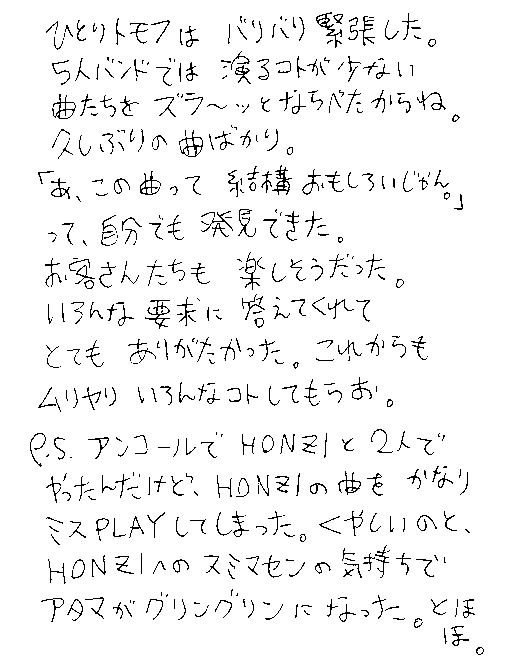 ひとりトモフは バリバリ緊張した。
5人バンドでは 演るコトが少ない
曲たちを ズラ～ッとならべたからね。
久しぶりの曲ばかり。
「あ、この曲って 結構おもしろいじかん。」
って、自分でも発見できた。
お客さんたちも 楽しそうだった。
いろんな要求に 答えてくれて
とても ありがたかった。これからも
ムリヤリ いろんなコトしてもらお。
P.S. アンコールで HONZIと 2人で
やったんだけど、HONZIの曲を かなり
ミスPLAYしてしまった。くやしいのと、
HONZIへのスミマセンの気持ちで
アタマがグリングリンになった。とほ
ほ。